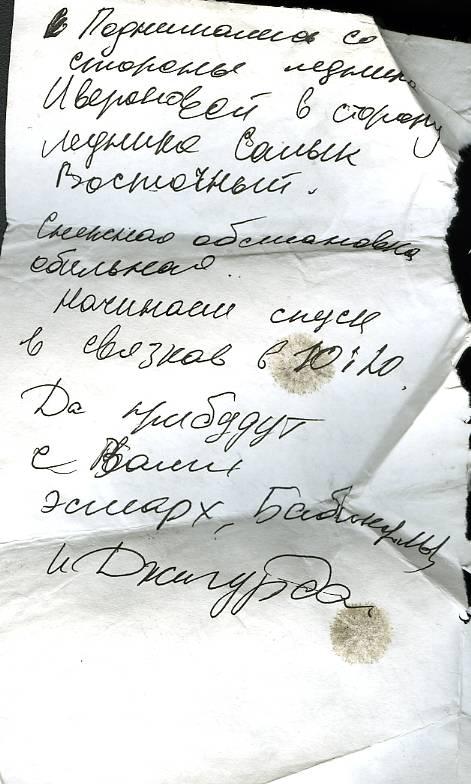 Поднимались со
стороны ледника
Ивероновой в сторону
ледника Салык
Восточный.
Снежная обстановка
обильная.
Начинаем спуск
в связках в 10:20.
Да прибудут
с Вами
эсмарх,
и Джигурда.